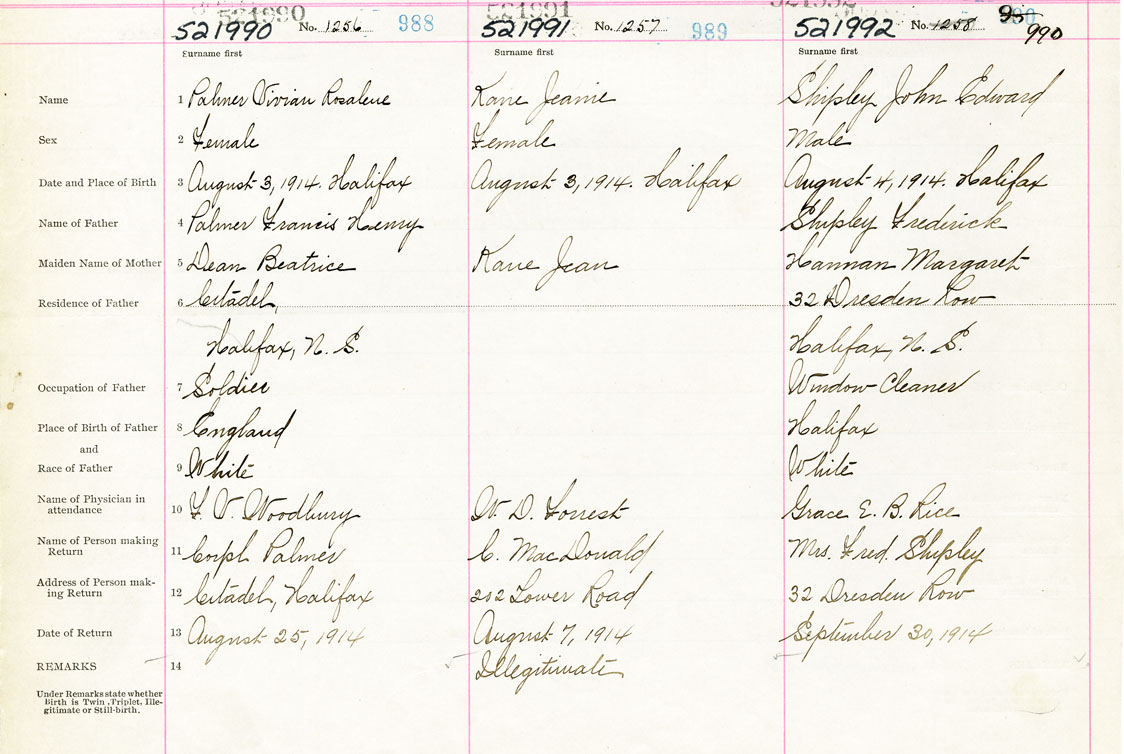 521990 521991
521990 No. 1256 988 521991 No. 1257 989 521992 No. 1258 990
Surname first Surname first Surname first
Name 1 Palmer Vivian Rosalene Kane Jeanie Shipley John Edward
Sex 2 Female Female Male
Date and Place of Birth 3 August 3, 1914. Halifax August 3, 1914. Halifax August 4, 1914. Halifax
Name of Father 4 Palmer Francis Henry Shipley Frederick
Maiden Name of Mother 5 Dean Beatrice Kane Jean Hannan Margaret
Residence of Father 6 Citadel, 32 Dresden Row
Halifax, N. S. Halifax, N. S.
Occupation of Father 7 Soldier Window Cleaner
Place of Birth of Father 8 England Halifax
and
Race of Father 9 White White
Name of Physician in
attendance 10 F. V. Woodbury W. D. Forrest Grace E. B. Rice
Name of Person making
Return 11 Corpl Palmer C. MacDonald Mrs. Fred. Shipley
Address of Person mak-
ing Return 12 Citadel, Halifax 202 Lower Road 32 Dresden Row
Date of Return 13 August 25, 1914 August 7, 1914 September 30, 1914
REMARKS 14 Illegitimate
Under Remarks state whether
Birth is Twin, Triplet, Ille-
gitimate or Still-birth.